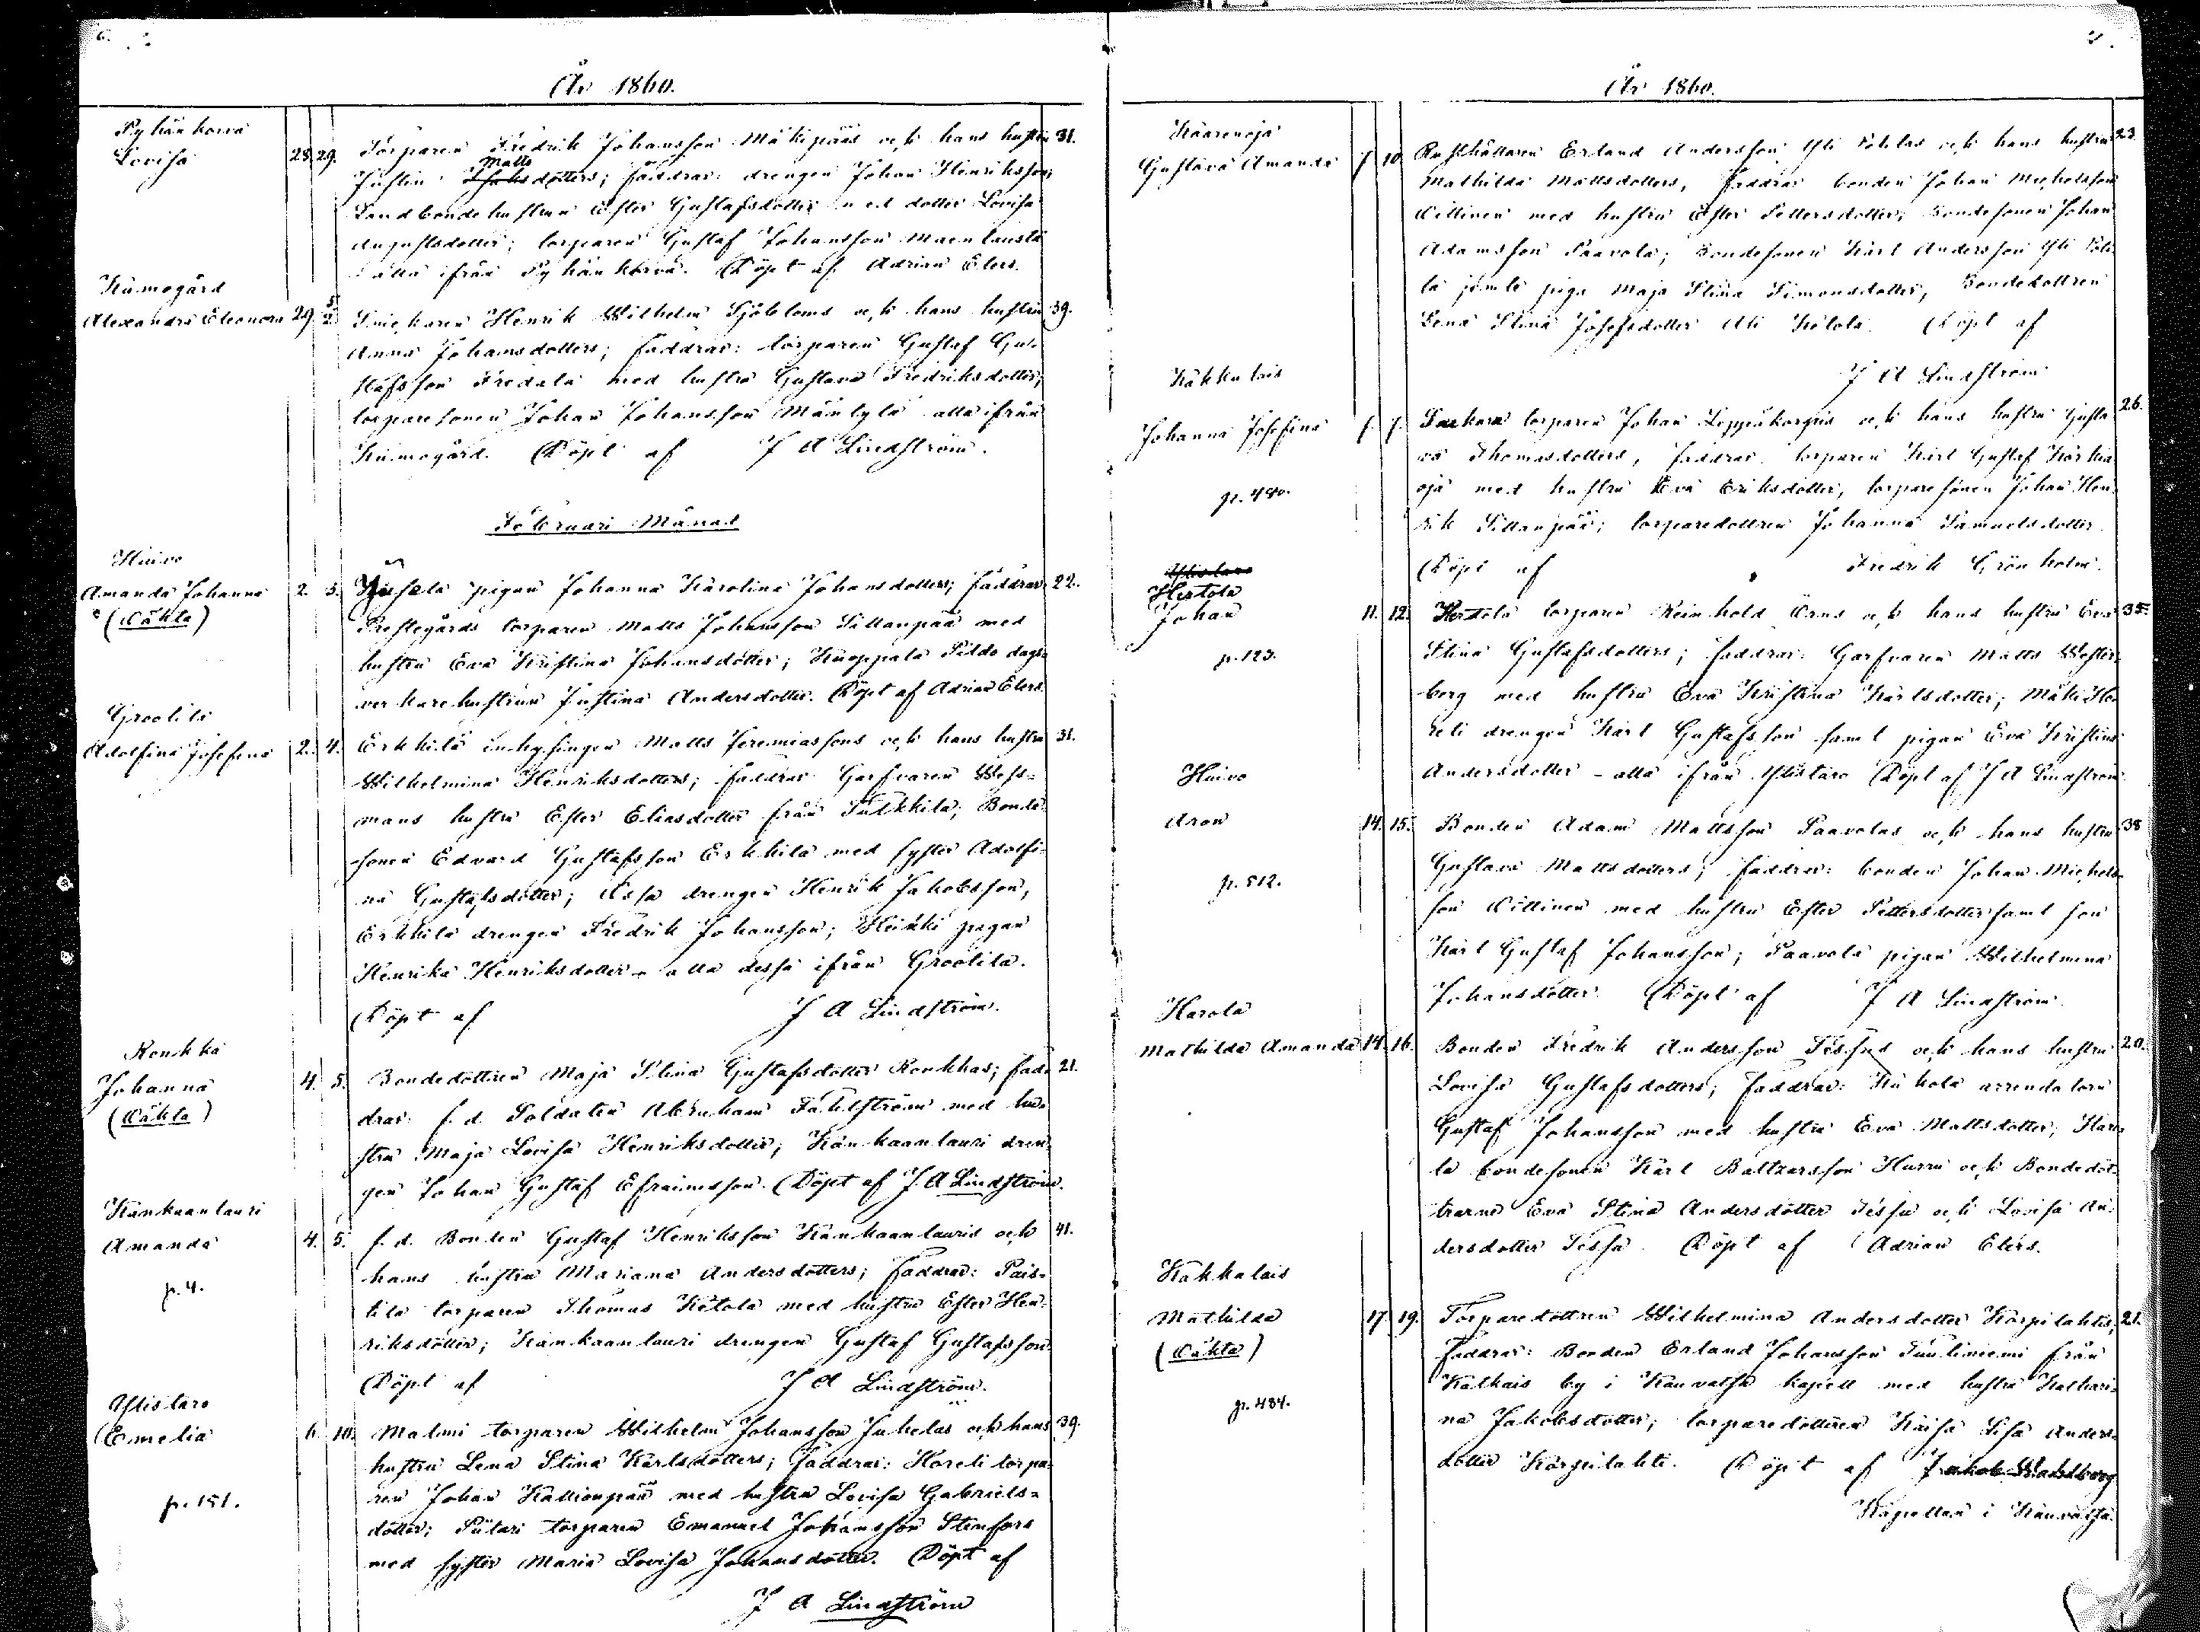 År 1860.
Pyhänkorva
Lovisa
28. 29. Torparen Fredrik Johansson Mäkipääs och hans hustru 31.
Matts
Justin Isaksdotters; faddrar: drengen Johan Henriksson;
Landbondehustrun Ester Gustafsdotter med dotter Lovisa
Augustsdotter; torparen Gustaf Johansson
alla ifrån Pyhänkorva. Döpt af Adrian Elers.
Kumogård
Alexandra Eleonora 29 5/2 Snickaren Henrik Wilhelm Sjöbloms och hans hustru 39.
Anna Johansdotters; faddrar: torparen Gustaf Gu-
stafsson Fredala med hustru Gustava Fredriksdotter;
torparesonen Johan Johansson Mäntylä alla ifrån
Kumogård. Döpt af J A Lindström.
Februari Månad
Huivo
Amanda Johanna
(Oäkta)
2. 5. pigan Johanna Karolina Johansdotters; faddrar: 22.
Prestegårds torparen Matts Johansson Sillanpää med
hustru Eva Kristina Johansdotter; Kuoppala Pildo dags-
verkarehustrun Justina Andersdotter. Döpt af Adrian Elers.
Groolila
Adolfina Josefina 2. 4. Erkkilä inhysingen Matts Jeremiassons och hans hustru 31.
Wilhelmina Henriksdotters; faddrar: Garfvaren Wess-
mans hustru Ester Eliasdotter från Tulkkila; Bonde-
sonen Edvard Gustafsson Erkkilä med syster Adolfi-
na Gustafsdotter; Assa drengen Henrik Jakobsson,
Erkkilä drengen Fredrik Johansson; Heikki pigan
Henrika Henriksdotter - alla dessa ifrån Groolila.
Döpt af J A Lindström.
Ronkka
Johanna
(Oäkta)
4. 5. Bondedottren Maja Stina Gustafsdotter Ronkkas; fad- 21.
drar: f. d. Soldaten Abraham Fahlström med hu-
stru Maja Lovisa Henriksdotter; Kankaanlauri dren-
gen Johan Gustaf Efraimsson. Döpt af J. A Lindström.
Kankaanlauri
Amanda
p. 4.
4. 5. f. d. Bonden Gustaf Henriksson Kankaanlauris och 41.
hans hustru Mariana Andersdotters; faddrar: Pais-
tila torparen Thomas Ketola med hustru Ester Hen-
riksdotter; Kankaanlauri drengen Gustaf Gustafsson.
Döpt af J A Lindström.
Ylistaro
Emelia
p. 151.
6. 10. Malmi torparen Wilhelm Johansson Juhelas och hans 39.
hustru Lena Stina Karlsdotters; faddrar: Horeli torpa-
ren Johan Kallionpää med hustru Lovisa Gabriels-
dotter; Piilari torparen Emanuel Johansson Stenfors
med syster Maria Lovisa Johansdotter. Döpt af
J A Lindström
År 1860.
Käärenoja
Gustava Amanda 7 10 Rusthållaren Erland Andersson Yli och hans hustru 23.
Mathilda Mattsdotters, faddrar bonden Johan Michelsson
Wittinen med hustru Ester Pettersdotter; Bondesonen Johan
Adamsson Paavola; Bondesonen Karl Andersson Yli
la jemte piga Maja Stina Simonsdotter, Bondedottren
Lena Stina Josefsdotter Ali Kelola. Döpt af
J A Lindström
Kakkulais
Johanna Josefina
p. 480.
torparen Johan Leppäkorpis och hans hustru Gusta- 26.
va Thomasdotters, faddrar: torparen Karl Gustaf
oja med hustru Eva Eriksdotter, torparesonen Johan Hen-
rik Sillanpää; torparedottren Johanna Samuelsdotter.
Döpt af Fredrik Grönholm.
Ylistaro
Hertola
Johan
p. 123.
11. 12. Hertola torparen Reinhold Örns och hans hustru Eva 35.
Stina Gustafsdotters; faddrar: Garfvaren Matts Wester-
berg med hustru Eva Kristina Karlsdotter; Mäki Ho-
reli drengen Karl Gustafsson samt pigan Eva Kristina
Andersdotter - alla ifrån Ylistaro Döpt af J A Lindström
Huivo
Aron
p. 512.
14. 15. Bonden Adam Mattsson Paavolas och hans hustru 38
Gustava Mattsdotters; faddrar: bonden Johan Michels-
son Wittinen med hustru Ester Pettersdotter samt son
Karl Gustaf Johansson; Paavola pigan Wilhelmina
Johansdotter. Döpt af J A Lindström.
Harola
Mathilda Amanda 14. 16. Bonden Fredrik Andersson Tessus och hans hustru 20.
Lovisa Gustafsdotters; faddrar: Kukola arrendatorn
Gustaf Johansson med hustru Eva Mattsdotter; Haro-
la bondesonen Karl Baltzarsson Hurru och Bondedöt-
trarne Eva Stina Andersdotter Tessu och Lovisa An-
dersdotter Tessu. Döpt af Adrian Elers.
Kakkulais
Mathilda
(Oäkta)
p. 484.
17 19. Torparedottren Wilhelmina Andersdotter Karpilahtis; 21.
faddrar: Bonden Erland Johansson från
Kalkais by i Kauvatsa kapell med hustru Kathari-
na Jakobsdotter; torparedottren Kaisa Lisa Anders-
dotter Karpilahti. Döpt af Jakob Wahlberg
Kapellan i Kauvatsa.